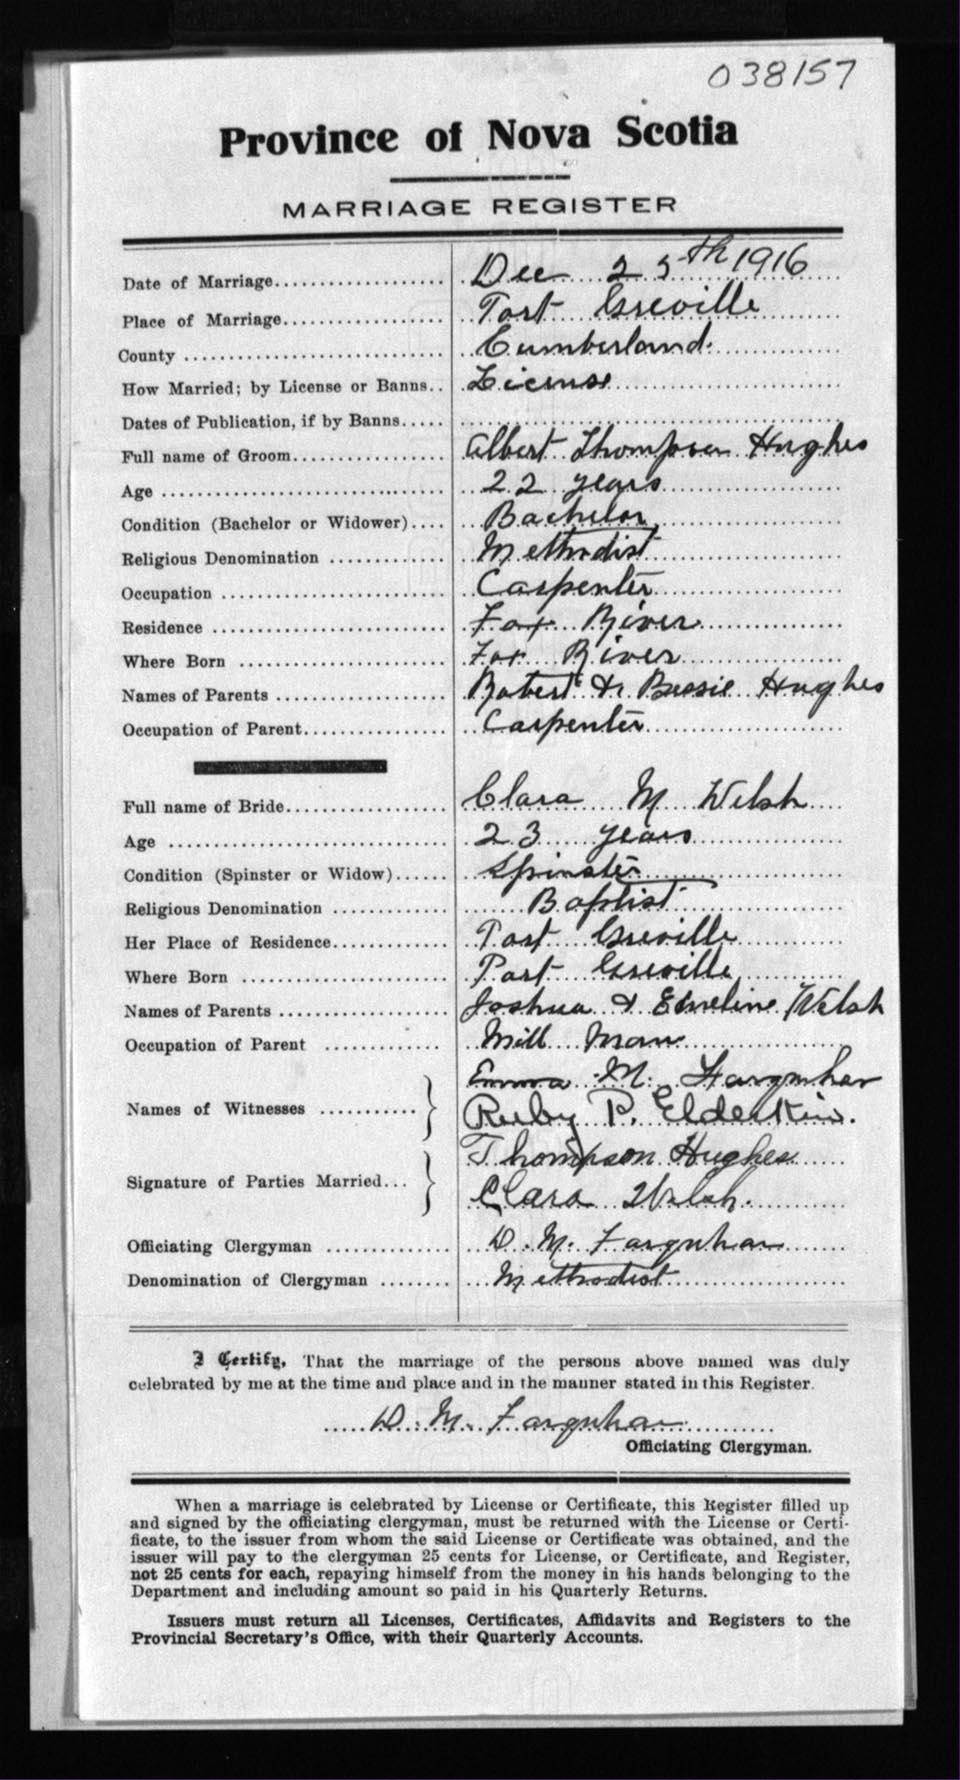 038157
Province of Nova Scotia
MARRIAGE REGISTER
Date of Marriage Dec 25th 1916
Place of Marriage Port Greville
County Cumberland
How Married; by License or Banns License
Dates of Publication, if by Banns
Full name of Groom Albert Thompson Hughes
Age 22 years
Condition (Bachelor or Widower) Bachelor
Religious Denomination Methodist
Occupation Carpenter
Residence Fox River
Where Born Fox River
Names of Parents Robert & Bessie Hughes
Occupation of Parent Carpenter
Full name of Bride Clara M Welsh
Age 23 years
Condition (Spinster or Widow) Spinster
Religious Denomination Baptist
Her Place of Residence Port Greville
Where Born Port Greville
Names of Parents Joshua & Emeline Welsh
Occupation of Parent Mill Man
Names of Witnesses Emma M. Farquhar
Ruby P. Elderkin.
Signature of Parties Married Thompson Hughes
Clara Welsh.
Officiating Clergyman D. M. Farquhar
Denomination of Clergyman Methodist
I Certify, That the marriage of the persons above named was duly
celebrated by me at the time and place and in the manner stated in this Register.
D. M. Farquhar
Officiating Clergyman.
When a marriage is celebrated by License or Certificate, this Register filled up
and signed by the officiating clergyman, must be returned with the License or Certi-
ficate, to the issuer from whom the said License or Certificate was obtained, and the
issuer will pay to the clergyman 25 cents for License, or Certificate, and Register,
not 25 cents for each, repaying himself from the money in his hands belonging to the
Department and including amount so paid in his Quarterly Returns.
Issuers must return all Licenses, Certificates, Affidavits and Registers to the
Provincial Secretary's Office, with their Quarterly Accounts.